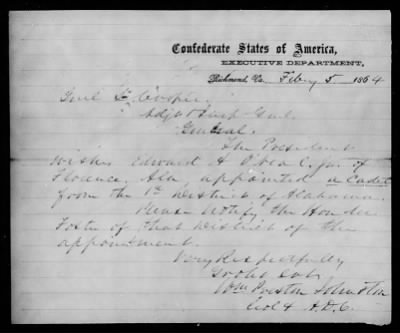 Confederate States of America,
EXECUTIVE DEPARTMENT,
Richmond, Va. Feby 5. 1864
Genl S. Cooper.
Adjt & Insp Genl
General.
The President
wishes Edward A O'Neal Jr. of
Florence, Ala appointed a Cadet
from the 1st District of Alabama.
Please notify the Hon. Mr
Foster of that District of the
appointment.
Very Respectfully
Your obt svt
Wm Preston Johnston
Col & A.D.C.